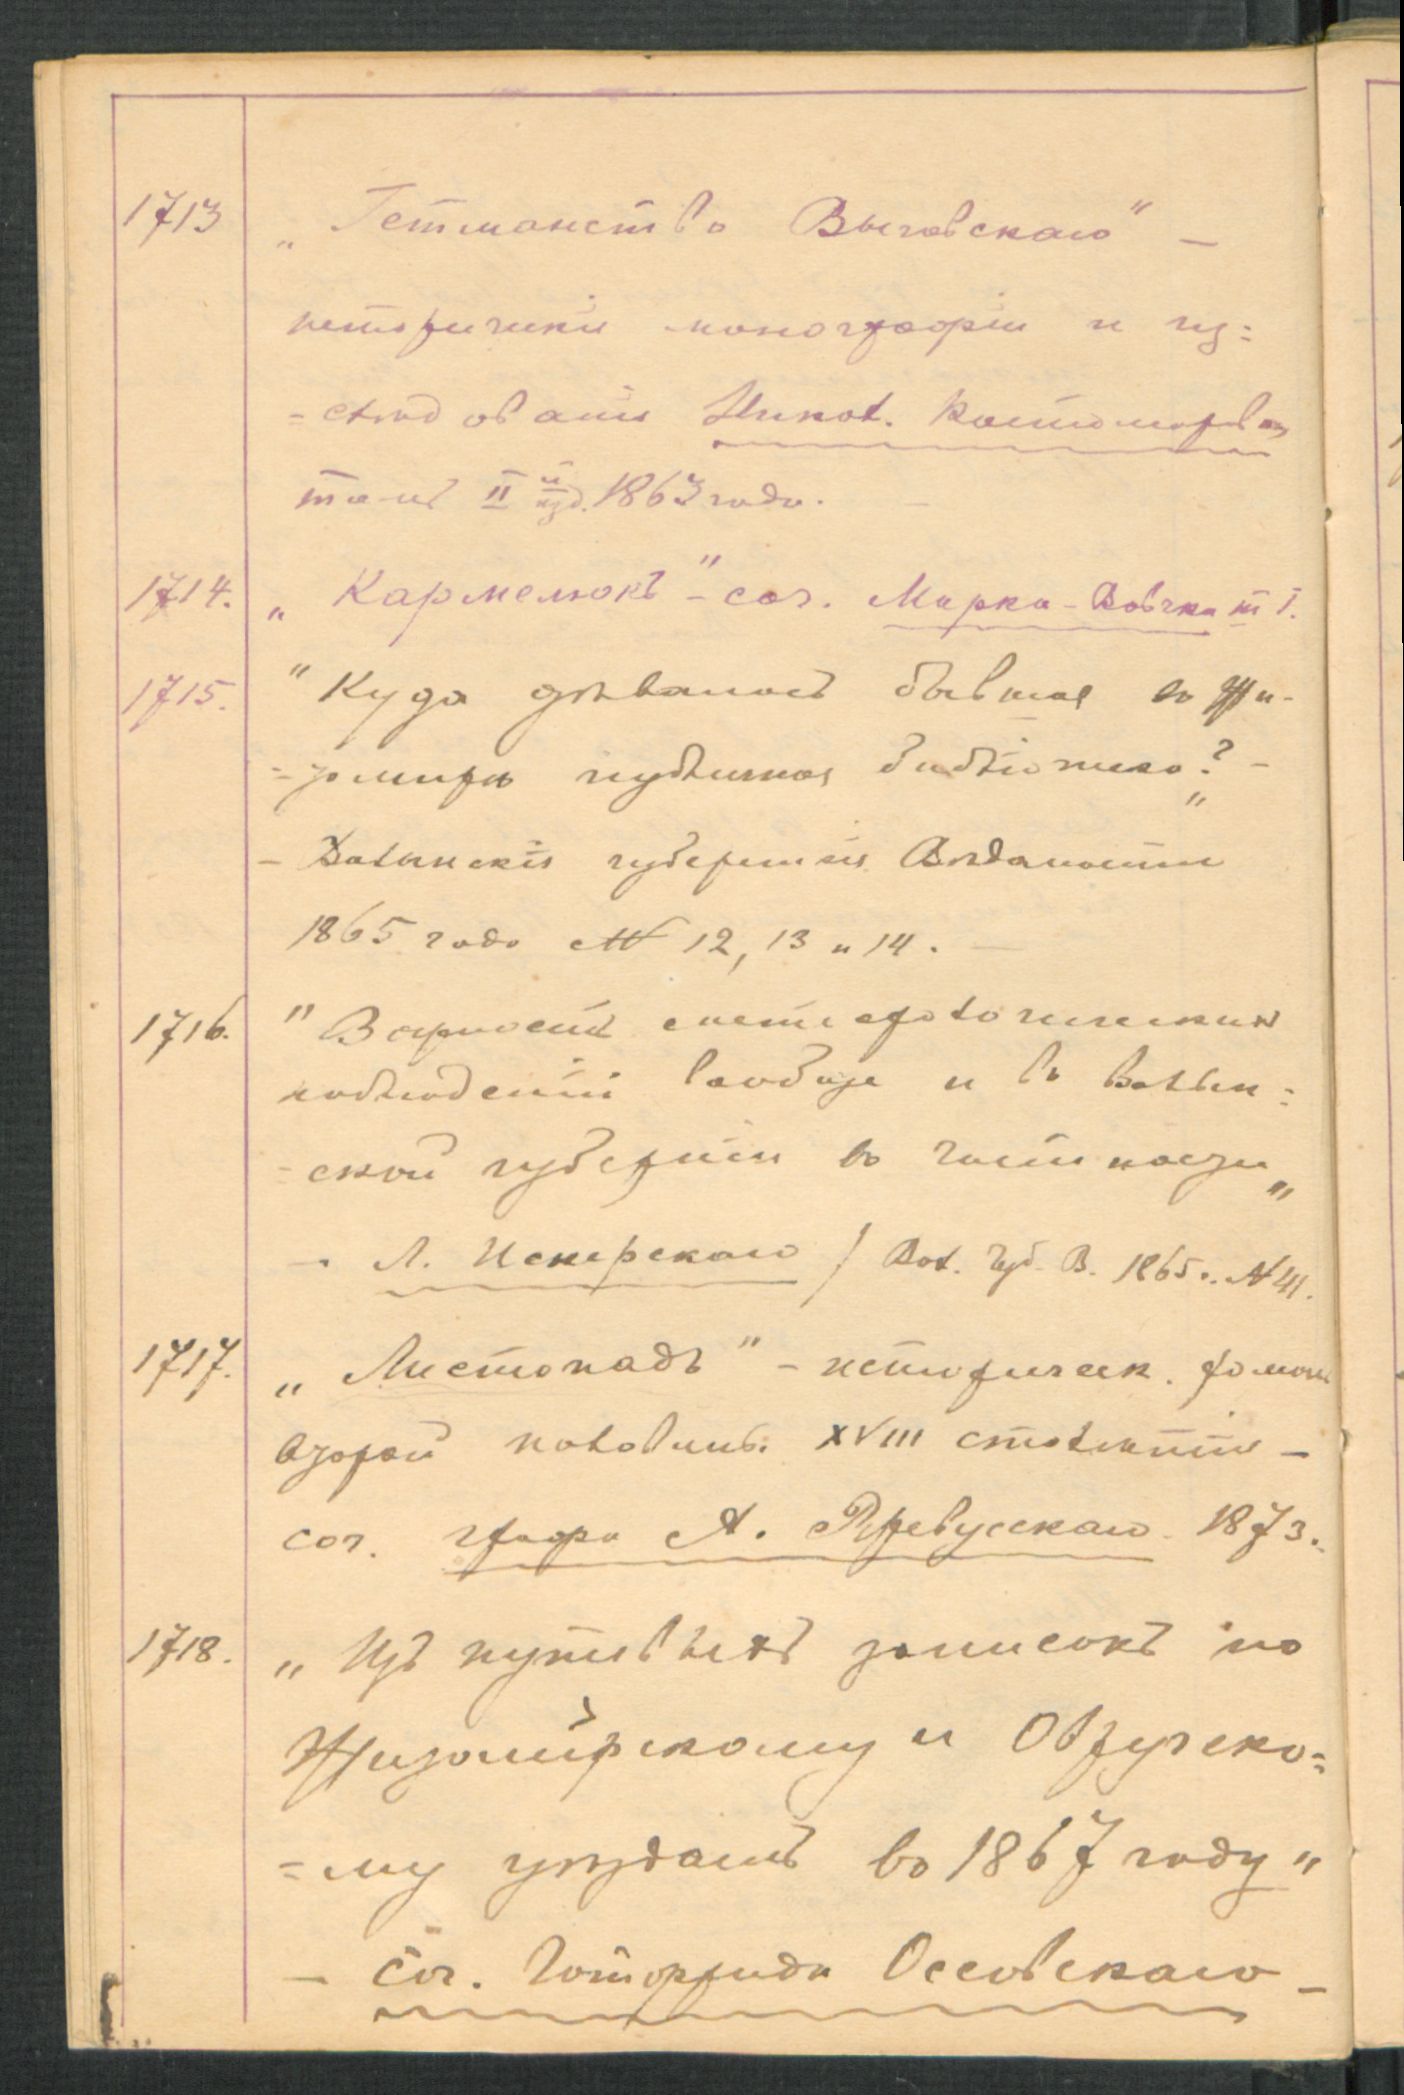 1713 „Гетманство Выговскаго" –
историческія монографіи и из=
=слѣдованія Никол. Костомарова
томъ II й изд. 1863 года. –
1714. „Кармелюкъ" – соч. Марка-Вовчка т I.
1715. "Куда дѣвалась бывшая въ Жи-
=томирѣ публичная библіотека?„ –
– Волынскія губернскія Вѣдомости
1865 года № 12, 13 и 14. –
1716. "Важность метеорологическихъ
наблюденій вообще и въ Волын=
=ской губерніи въ частности„
–. Л. Искерскаго / Вол. Губ. В. 1865 г. № 41.
1717. „Листопадъ" – историческ. романъ
второй половины XVIII столѣтія –
соч. графа А. Ржевусскаго 1873.
1718. „Изъ путевыхъ записокъ по
Житомірскому и Овручско=
=му уѣздамъ въ 1867 году"
– соч. Готфрида Оссовскаго –